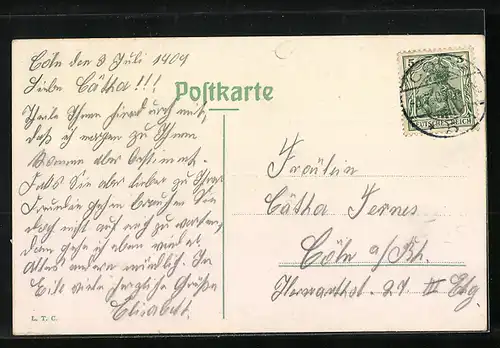 Cöln den 3 Juli 1909
Liebe Cätha!!!
Theile Ihnen hierdurch mit,
daß ich morgen zu Ihnen
komme aber bestimmt.
Falls Sie aber lieber zu Ihrer
Freundin gehen brauchen Sie
doch nicht auf mich zu warten,
dann gehe ich eben wieder.
Alles andere mündlich. In
Eile viele herzliche Grüße
Elisabeth.
L. T. C.
Postkarte
5 5
DEUTSCHES REICH
Fräulein
Cätha Fernes
Cöln a/Rh.
27 III Etg.